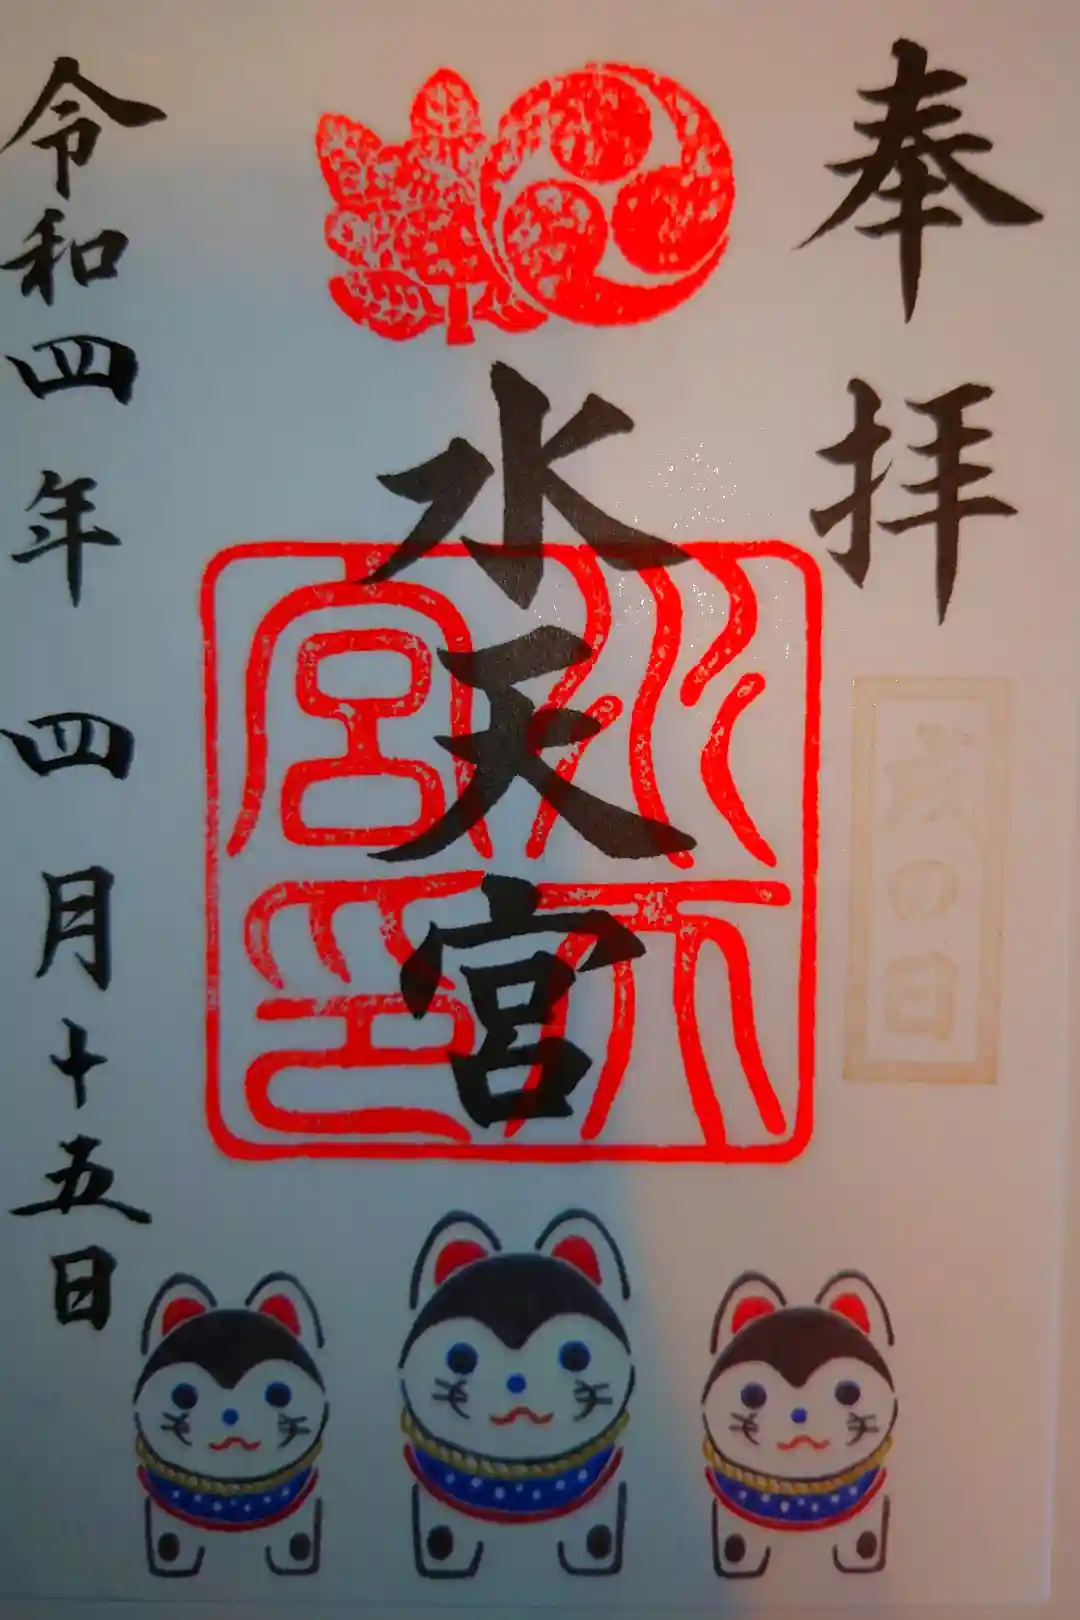 奉拝
戌の日
水天宮
水天宮印
令和四年四月十五日